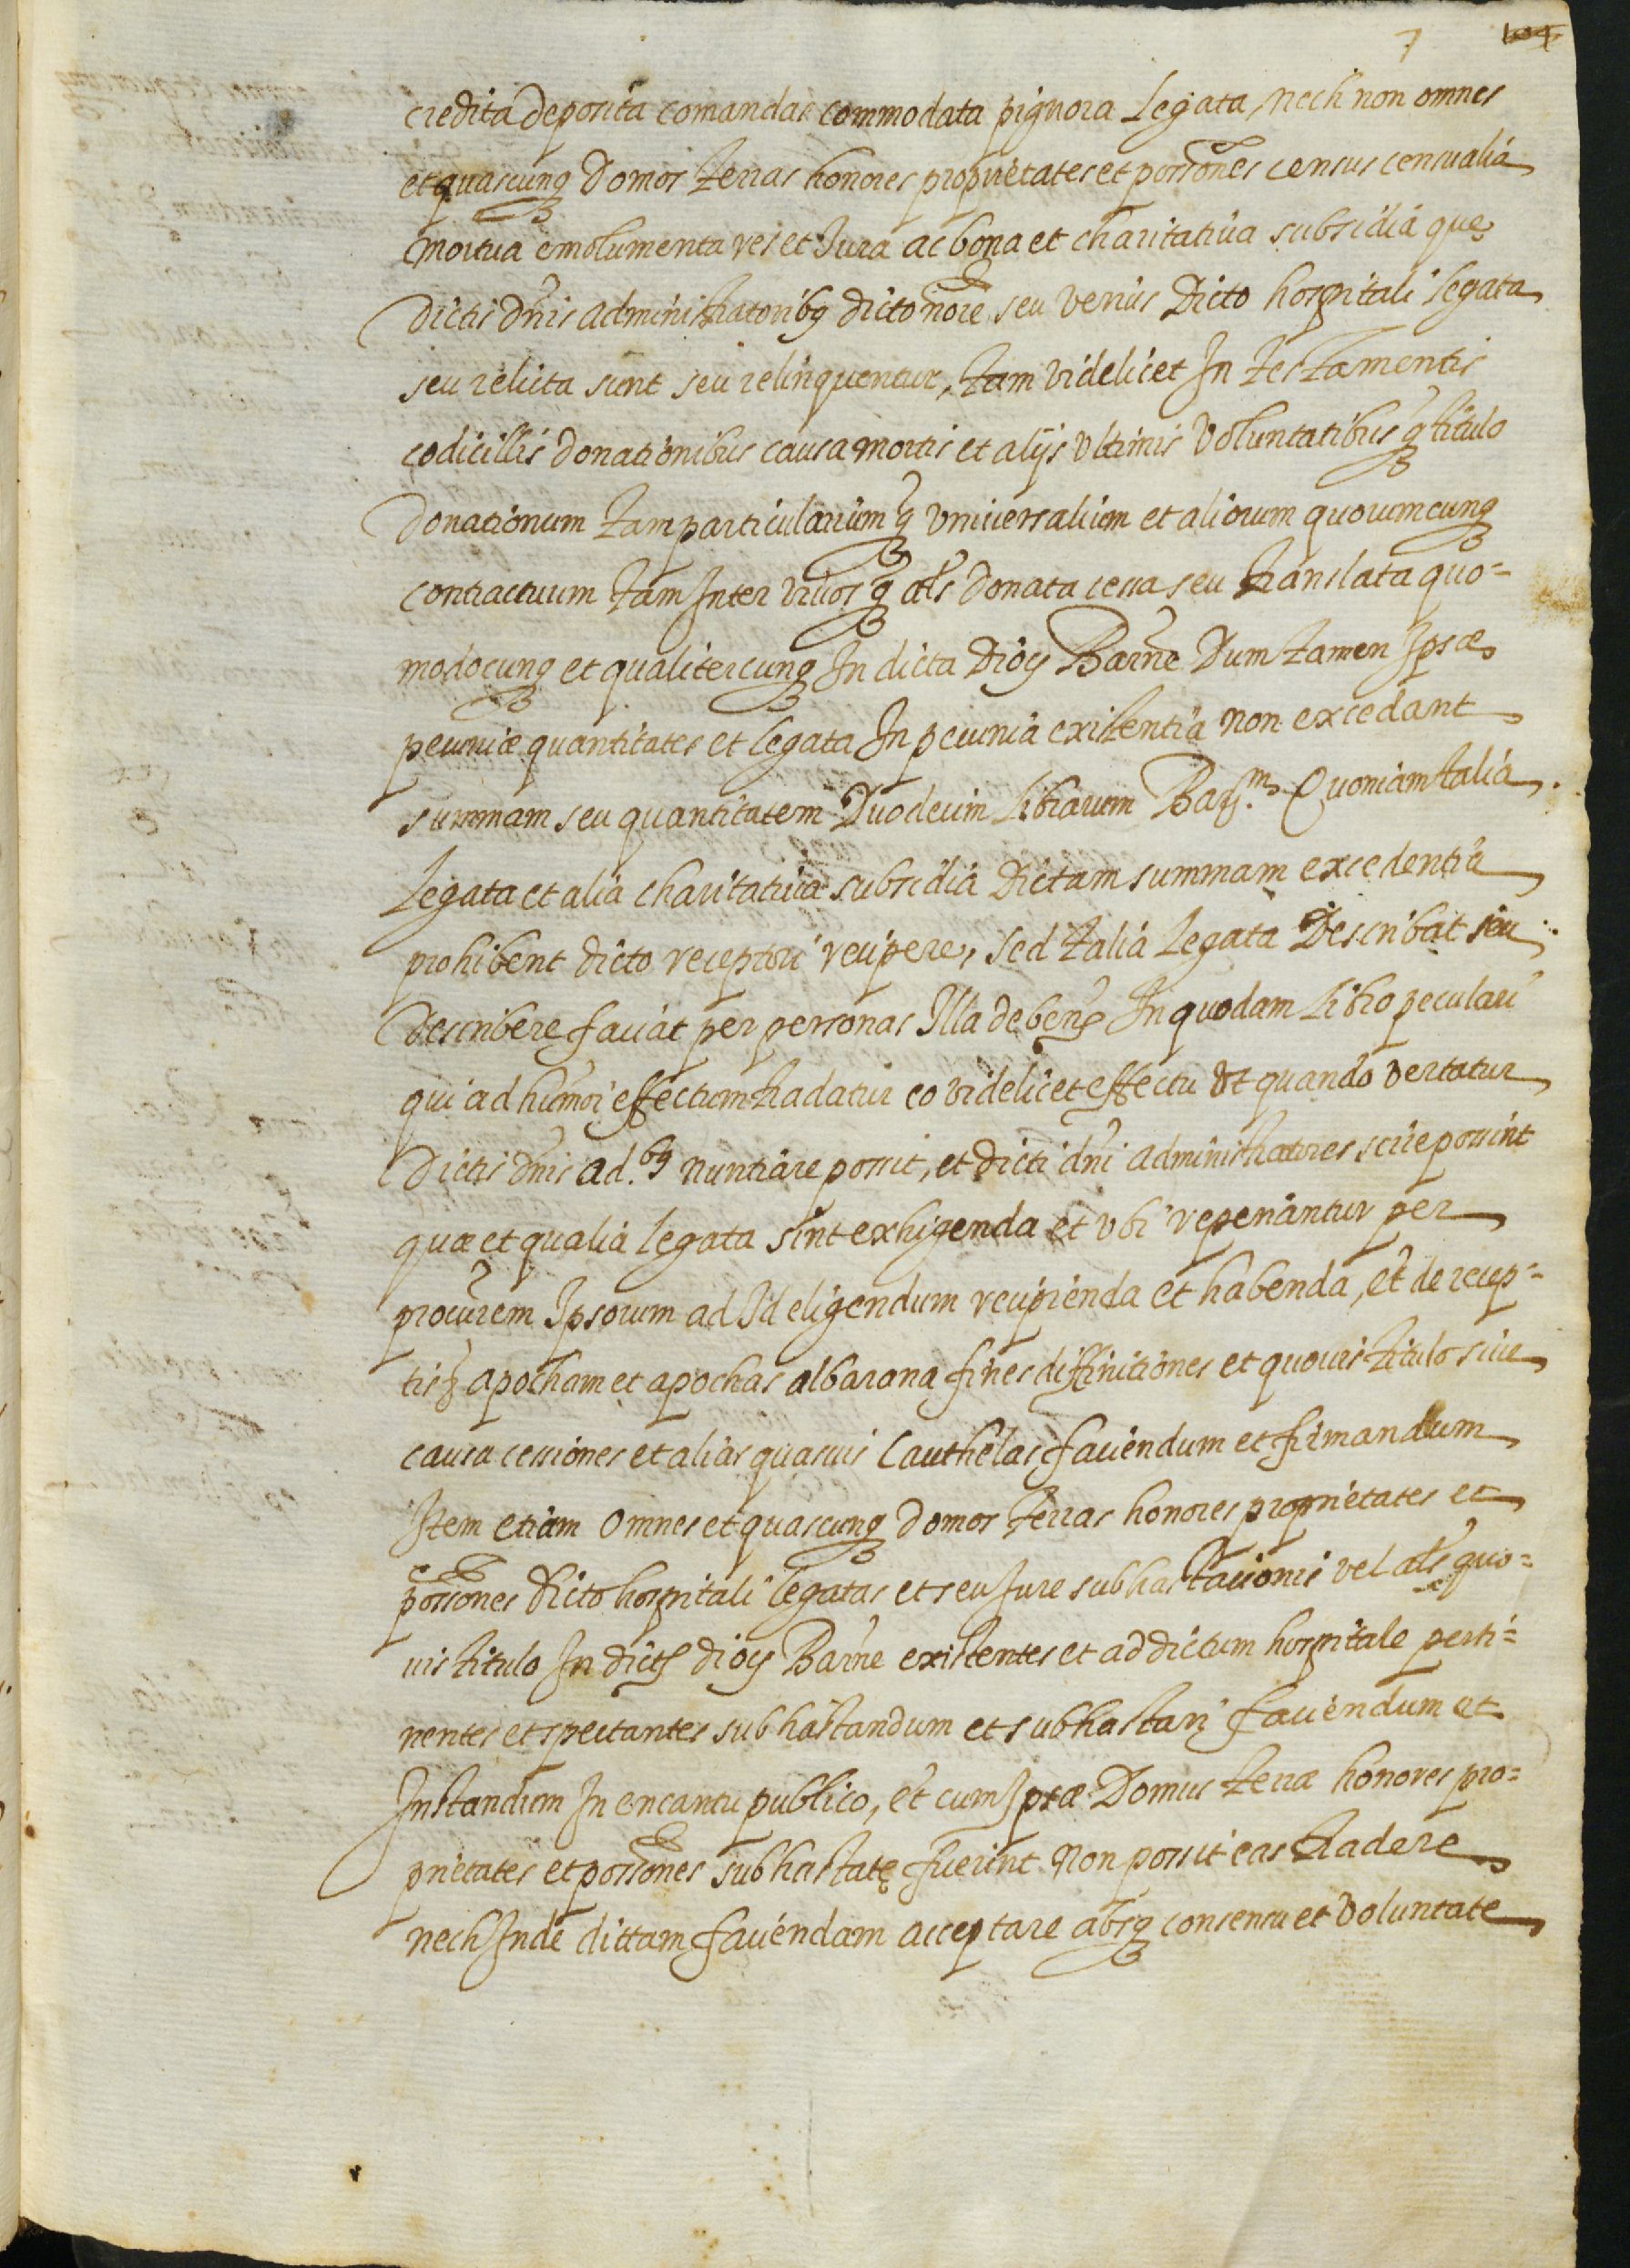 7 104
credita deposita comandas commodata pignora Legata, nech non omnes
et quascunq₃ Domos terras honores proprietates et possoñes census censualia
mortua emolumenta res et Jura ac bona et charitatiua subsidia quę
dictis dñis administratoribq dicto nõie seu verius Dicto hospitali legata
seu relicta sunt seu relinquentur, tam videlicet In testamentis
codicillis Donationibus causa mortis et alijs vltimis Voluntatibus q̃ titulo
Donationum tam particularium q̃ vniuersalium et aliorum quorumcunq₃
contractuum tam Inter viuos q̃ als̃ Donata cessa seu translata quo=
modocunq₃ et qualitercunq₃ In dicta Diocj Barñe Dum tamen Ipsæ
pecuniæ quantitates et legata In pecunia existentia non excedant
summam seu quantitatem Duodecim Librarum Barq.m Quoniam talia
Legata et alia charitatiua subsidia Dictam summam excedentia
prohibent dicto receptori recipere, sed talia Legata Describat seu
describere faciat per personas Illa deben͂ In quodam Libro peculari
qui ad humõi effectum tradatur eo videlicet effectu vt quando vertatur
Dictis dñis ad.bq nuntiare possit, et dicti dñi administratores scire possint
quæ et qualia legata sint exhigenda et vbi reperiantur per
procurem̃ Ipsorum ad Id eligendum recipienda et habenda, et de recep=
tis apocham et apochas albarana fines diffinitiones et quouis titulo siue
causa cessiones et alias quasuis Cauthelas faciendum et firmandum
Item etiam omnes et quascunq₃ Domos terras honores proprietates et
possones Dicto hospitali legatas et seu Jure subhastacionis vel als̃ quo=
uis titulo In dict͂ diocj Barñe existentes et ad dictum hospitale perti=
nentes et spectantes subhastandum et subhastari faciendum et
Instandum In encantu publico, et cum Ipsæ Domus terræ honores pro=
prietates et possones subhastatę fuerint Non possit eas tradere
nech Inde dittam faciendam acceptare absq₃ consensu et voluntate